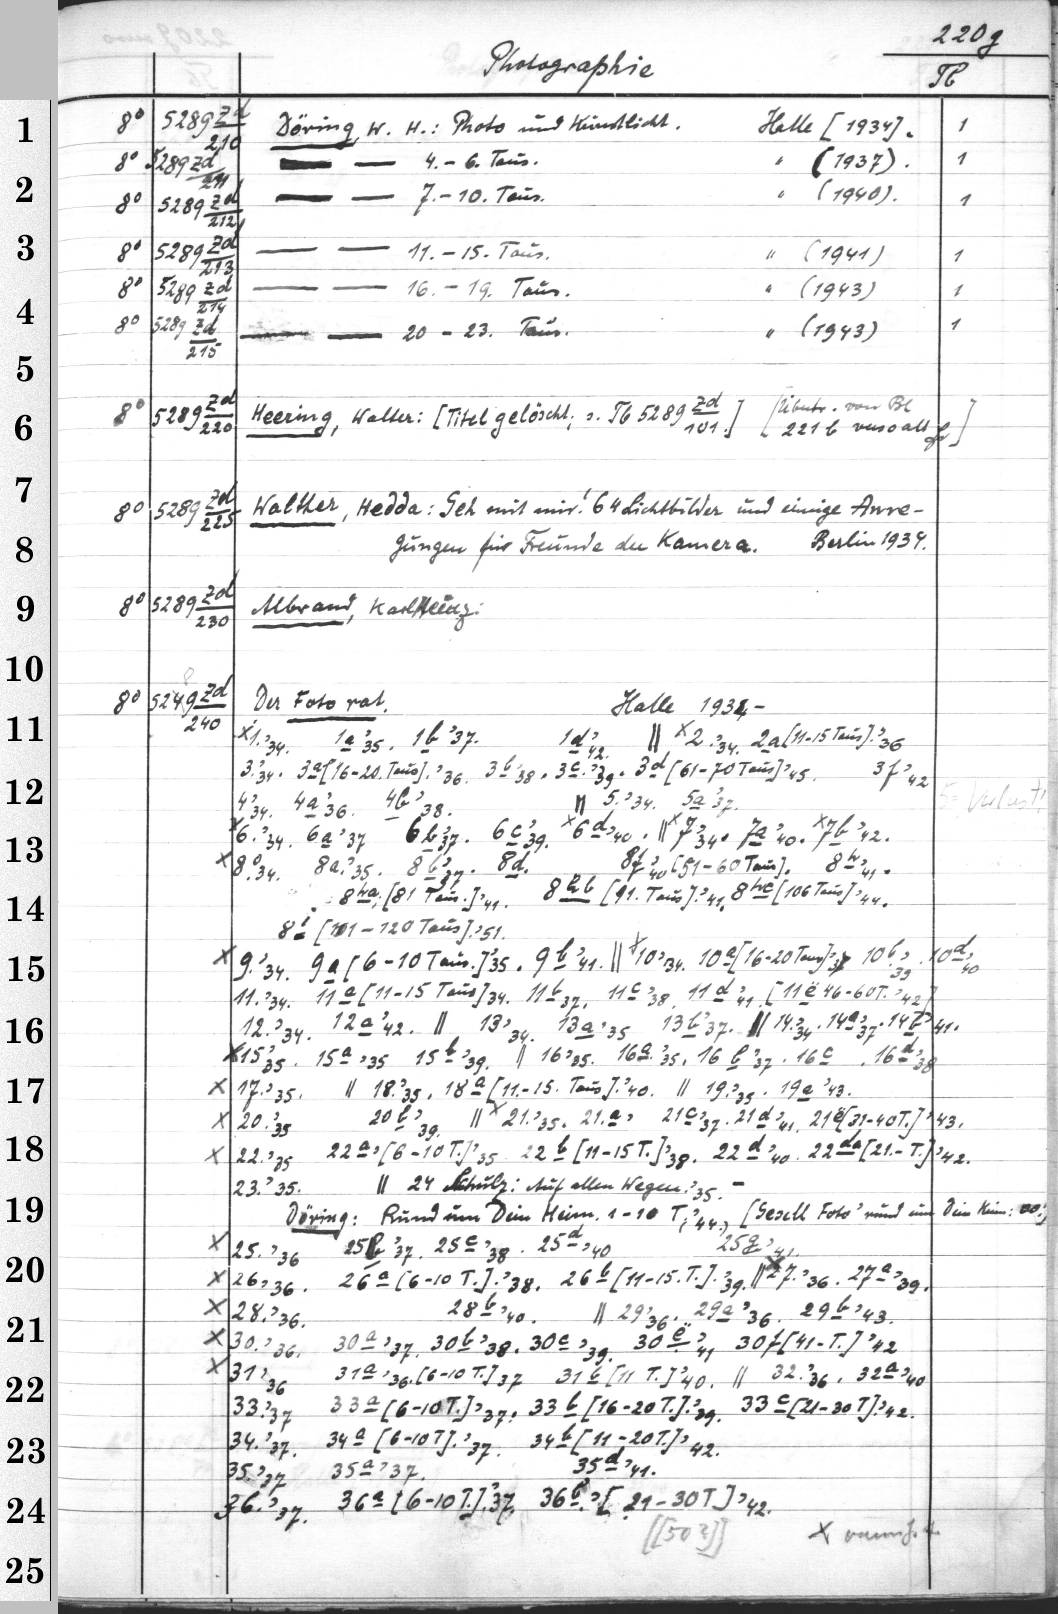 220g
Photographie
Tb
1 8° 5289 Zd/210 Döring, W. H.: Photo und Kunstlicht. Halle [1934]. 1
8° 5289 Zd/211 — — 4.-6. Taus. " (1937). 1
2 8° 5289 Zd/212 — — 7.-10. Taus. " (1940). 1
3 8° 5289 Zd/213 — — 11.-15. Taus. " (1941) 1
8° 5289 Zd/214 — — 16.-19. Taus. " (1943) 1
4 8° 5289 Zd/215 — — 20-23. Taus. " (1943) 1
5
8° 5289 Zd/220 Heering, Walter: [Titel gelöscht; s. Tb 5289 Zd/101.] [Übertr. von Bl
6 221 b verso alt]
7
8° 5289 Zd/225 Walther, Hedda: Geh mit mir! 64 Lichtbilder und einige Anre-
8 gungen für Freunde der Kamera. Berlin 1934.
9 8° 5289 Zd/230 Albrand, Karl Heinz:
10
8° 5249 Zd/240 Der Foto rat. Halle 1934-
11 x1.'34. 1a'35. 1b'37. 1d'42. || x2.'34. 2a[11-15 Taus].'36
3.'34. 3a[16-20. Taus].'36. 3b'38. 3c.'39. 3d[61-70 Taus]'45. 3f'42
12 4'34. 4a'36. 4b'38. || 5.'34. 5a'37. 5: Verlust!
x6.'34. 6a'37 6b'37. 6c'39. x6d'40. || x7'34. 7a'40. x7b'42.
13 x8.'34. 8a.'35. 8b'37. 8d. 8f'40[51-60 Taus]. 8h'41.
8ha.[81 Taus.]'41. 8hb [91. Taus]'41. 8hc[106 Taus]'44.
14 8i [101-120 Taus].'51.
15 x9.'34. 9a[6-10 Taus.]'35. 9b'41. || x10'34. 10a[16-20 Taus]'37 10b'39. 10d'40
11.'34. 11a[11-15 Taus]'34. 11b'37. 11c'38. 11d'41. [11e 46-60T.'42]
16 12.'34. 12a'42. || 13'34. 13a'35 13b'37. || 14.'34. 14a'37. 14b'41.
x15'35. 15a'35 15b'39. || 16'35. 16a'35. 16b'37. 16c. 16d'38
17 x 17.'35. || 18.'35. 18a[11-15. Taus].'40. || 19.'35. 19a'43.
x 20.'35 20b'39. || x21.'35. 21.a' 21c'37. 21d'41. 21e[31-40T.]'43.
18 x 22.'35 22a'[6-10T.]'35. 22b[11-15T.]'38. 22d'40. 22da[21.-T.]'42.
23.'35. || 24 Schulz: Auf allen Wegen.'35. -
19 Döring: Rund um Dein Heim. 1-10 T.'44., [Gesell Foto' rund um Dein Heim:
x 25.'36 25b'37. 25c'38. 25d'40 25g'41.
20 x 26.'36. 26a[6-10 T.].'38. 26b[11-15.T.].'39. || x27.'36. 27a'39.
x 28.'36. 28b'40. || 29'36. 29a'36. 29b'43.
21 x 30.'36. 30a'37. 30b'38. 30c'39. 30e'41 30f[41-T.]'42
x 31'36 31a'36.[6-10T.]'37 31b[11 T.]'40. || 32.'36. 32a'40
22 33.'37 33a[6-10T.]'37. 33b[16-20T.].'39. 33c[21-30T].'42.
23 34.'37. 34a[6-10T].'37. 34b[11-20T.]'42.
35.'37 35a'37. 35d'41.
24 36.'37. 36a[6-10T.].'37. 36b.'[21-30T]'42.
[[50?]]
25